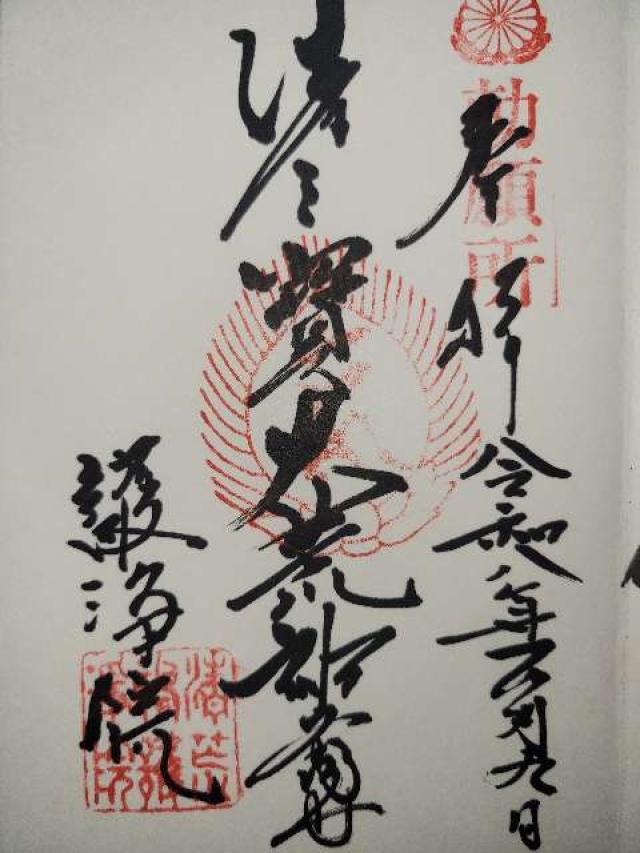 勅願所
奉拝 令和八年 月九日
清三寳大荒神尊
護浄院
清荒神護浄院